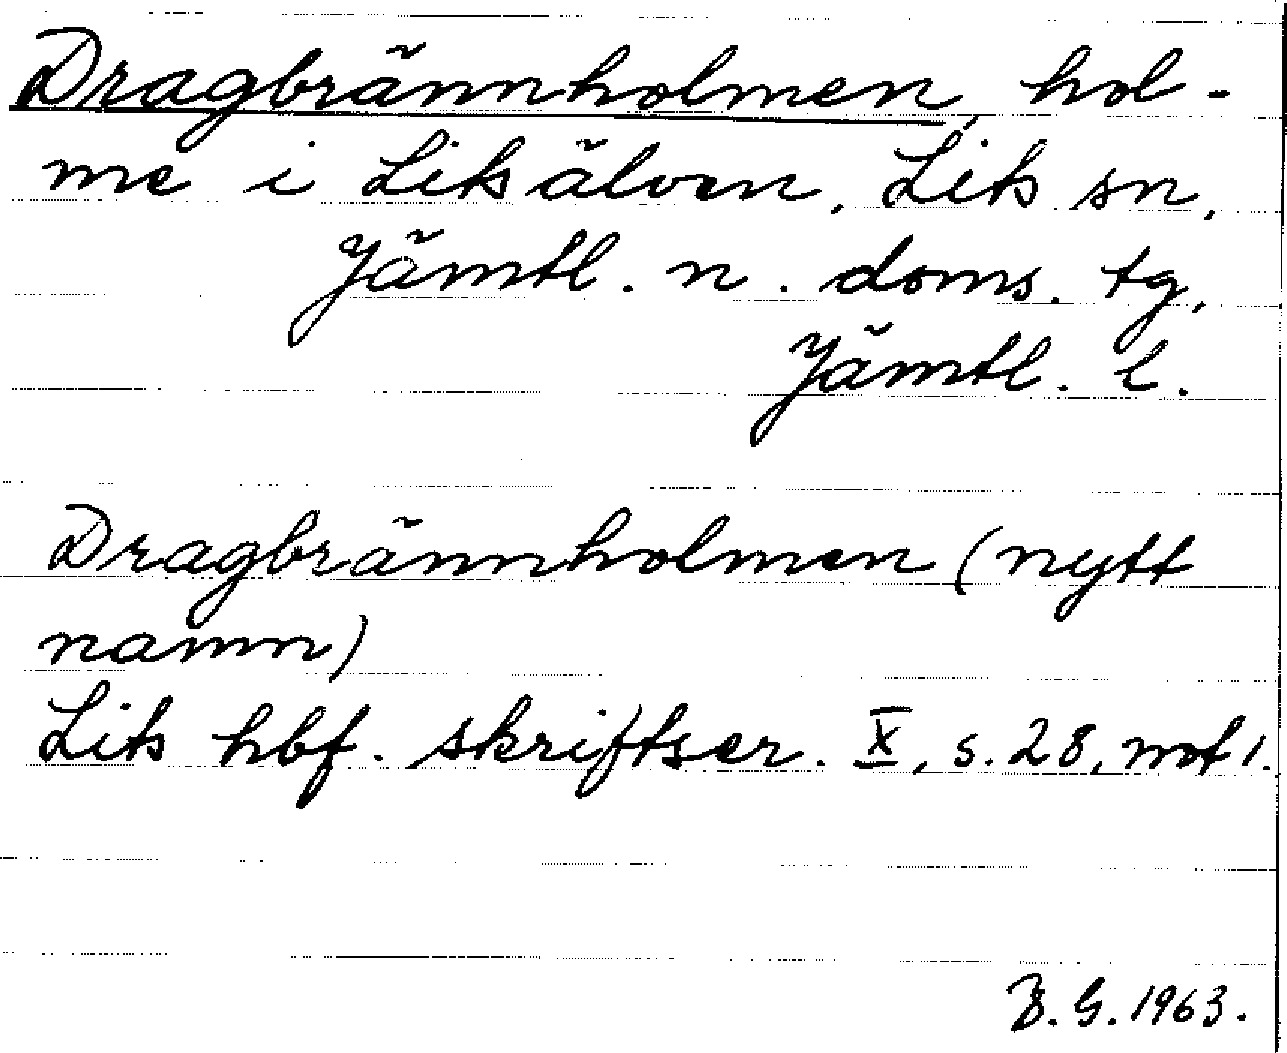 Dragbrännholmen, hol-
me i Litsälven, Lits sn,
Jämtl. n. doms. tg,
Jämtl. l.
Dragbrännholmen (nytt
namn)
Lits hbf. skriftser. X, s. 28, not 1.
B. G. 1963.